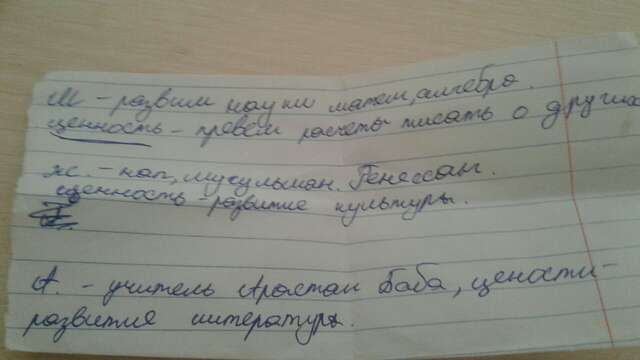 М – развит науки матем, алгебра.
ценность – провёл расчеты писать о других
ж. – нап, мусульман. Ренессан.
ценность – развитие культуры.
А. – учитель Арыстан Баба, цености –
развитие литературы.